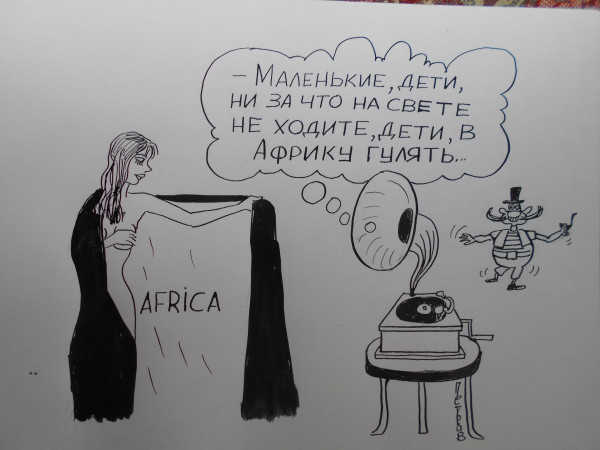 - Маленькие, дети,
ни за что на свете
не ходите, дети, в
Африку гулять...
AFRiCA
Петров